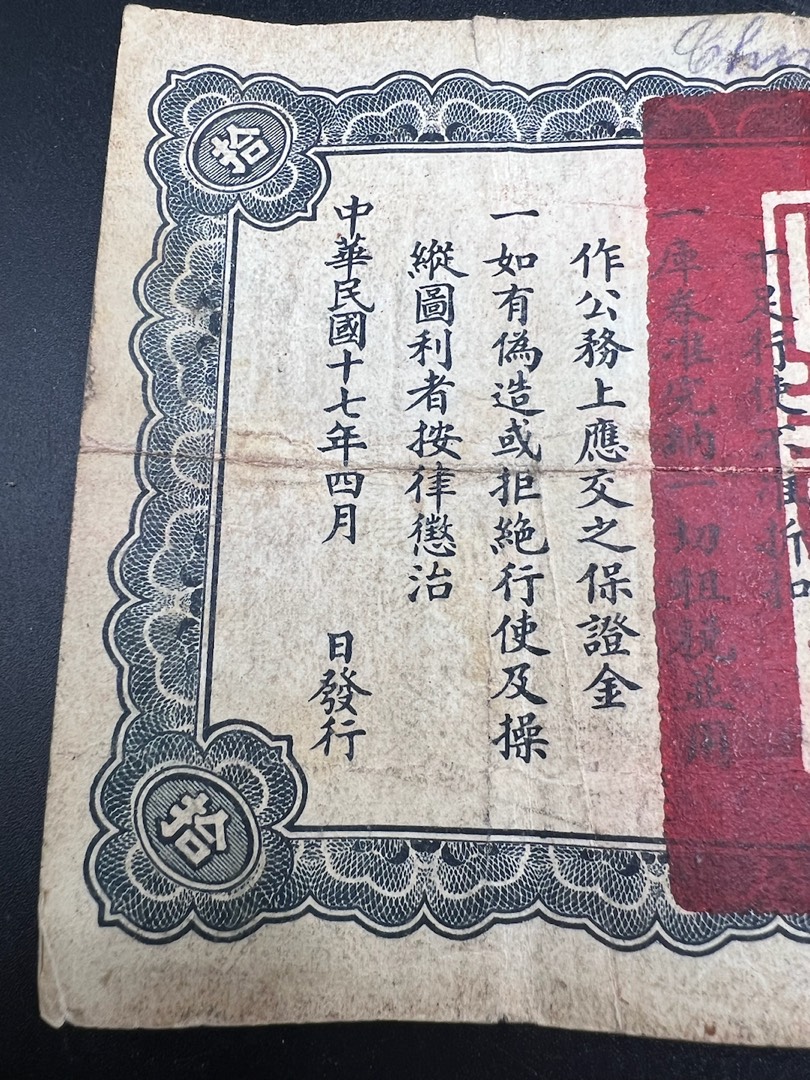 十足行使不准折扣
一庫券准完納一切租税並用
作公務上應交之保證金
一如有偽造或拒絕行使及操
縱圖利者按律懲治
中華民國十七年四月 日發行
拾
拾